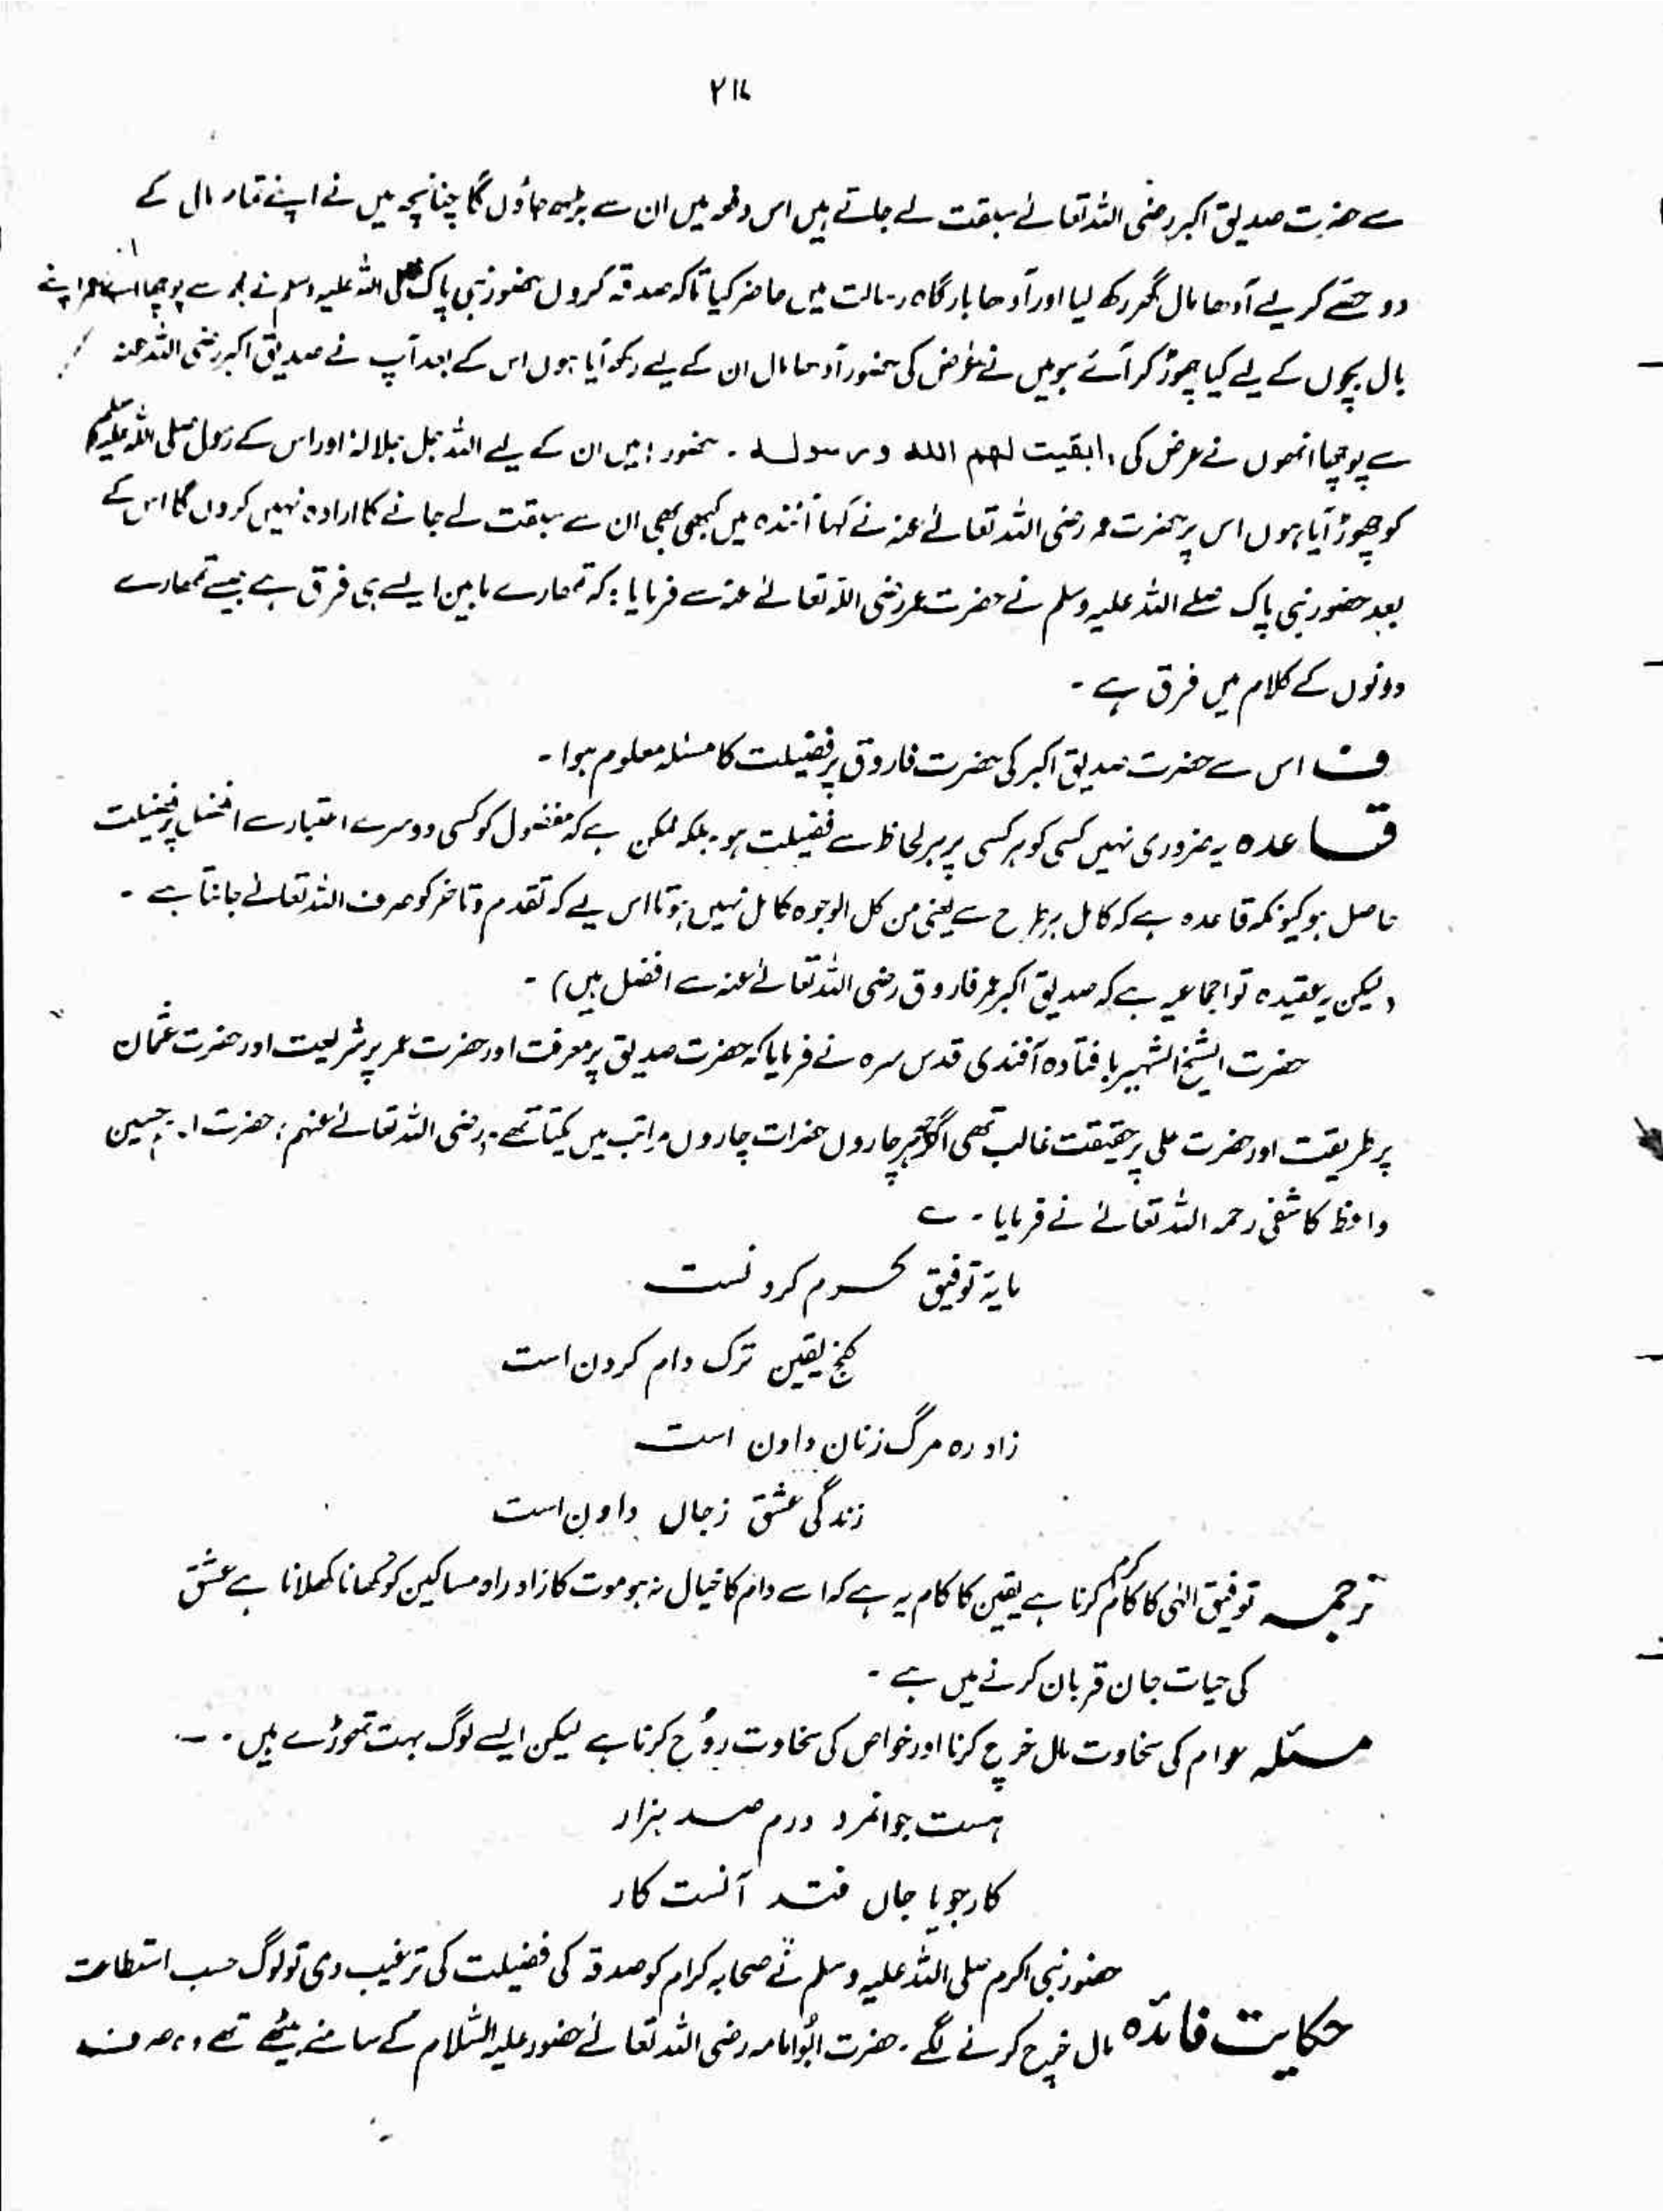 ۲۱۷
سے حضرت صدیق اکبر رضی اللہ تعالےٰ سبقت لے جاتے ہیں اس دفعہ میں ان سے بڑھ جاؤں گا چنانچہ میں نے اپنے تمام مال کے
دو حصّے کر لیے آدھا مال گھر رکھ لیا اور آدھا بارگاہ رسالت میں حاضر کیا تاکہ صدقہ کروں حضور نبی پاک صلی اللہ علیہ وسلم نے مجھ سے پوچھا اے عمر اپنے
بال بچوں کے لیے کیا چھوڑ کر آئے ہو میں نے عرض کی حضور آدھا مال ان کے لیے رکھ آیا ہوں اس کے بعد آپ نے صدیق اکبر رضی اللہ عنہ
سے پوچھا انھوں نے عرض کی، ابقیت لھم اللہ ورسولہ ۔ حضور! میں ان کے لیے اللہ جل جلالہٗ اور اس کے رسول صلی اللہ علیہ وسلم
کو چھوڑ آیا ہوں اس پر حضرت عمر رضی اللہ تعالےٰ عنہ نے کہا آئندہ میں کبھی بھی ان سے سبقت لے جانے کا ارادہ نہیں کروں گا اس کے
بعد حضور نبی پاک صلے اللہ علیہ وسلم نے حضرت عمر رضی اللہ تعالےٰ عنہ سے فرمایا: کہ تمھارے مابین ایسے ہی فرق ہے جیسے تمھارے
دونوں کے کلام میں فرق ہے ۔
ف اس سے حضرت صدیق اکبر کی حضرت فاروق پر فضیلت کا مسئلہ معلوم ہوا ۔
قاعدہ یہ ضروری نہیں کسی کو ہر کسی پر ہر لحاظ سے فضیلت ہو ۔ بلکہ ممکن ہے کہ مفضول کو کسی دوسرے اعتبار سے افضل پر فضیلت
حاصل ہو کیونکہ قاعدہ ہے کہ کامل ہر طرح سے یعنی من کل الوجوہ کامل نہیں ہوتا اس لیے کہ تقدم و تاخر کو صرف اللہ تعالےٰ جانتا ہے ۔
(لیکن یہ عقیدہ تو اجماعیہ ہے کہ صدیق اکبر عمر فاروق رضی اللہ تعالےٰ عنہ سے افضل ہیں) ۔
حضرت الشیخ الشہیر با فتادہ آفندی قدس سرہ نے فرمایا کہ حضرت صدیق پر معرفت اور حضرت عمر پر شریعت اور حضرت عثمان
پر طریقت اور حضرت علی پر حقیقت غالب تھی اگرچہ ہر چاروں حضرات چاروں مراتب میں یکتا تھے ۔ رضی اللہ تعالےٰ عنہم؛ حضرت حسین
واعظ کاشفی رحمہ اللہ تعالےٰ نے فرمایا ۔ ے
مایۂ توفیق کرم کردنست
گنج یقین ترک دام کردن است
زاد رہ مرگ زنان دادن است
زندگی عشق زجاں دادن است
ترجمہ توفیق الٰہی کا کام کرم کرنا ہے یقین کا کام یہ ہے کہ اسے دام کا خیال نہ ہو موت کا زاد راہ مساکین کو کھانا کھلانا ہے عشق
کی حیات جان قربان کرنے میں ہے ۔
مسئلہ عوام کی سخاوت مال خرچ کرنا اور خواص کی سخاوت روح خرچ کرنا ہے لیکن ایسے لوگ بہت تھوڑے ہیں ۔
ہست جوانمرد درم صد ہزار
کار چو با جاں فتد آنست کار
حضور نبی اکرم صلی اللہ علیہ وسلم نے صحابہ کرام کو صدقہ کی فضیلت کی ترغیب دی تو لوگ حسب استطاعت
حکایت فائدہ مال خرچ کرنے لگے ۔ حضرت ابوامامہ رضی اللہ تعالےٰ حضور علیہ السّلام کے سامنے بیٹھے تھے وہ صرف